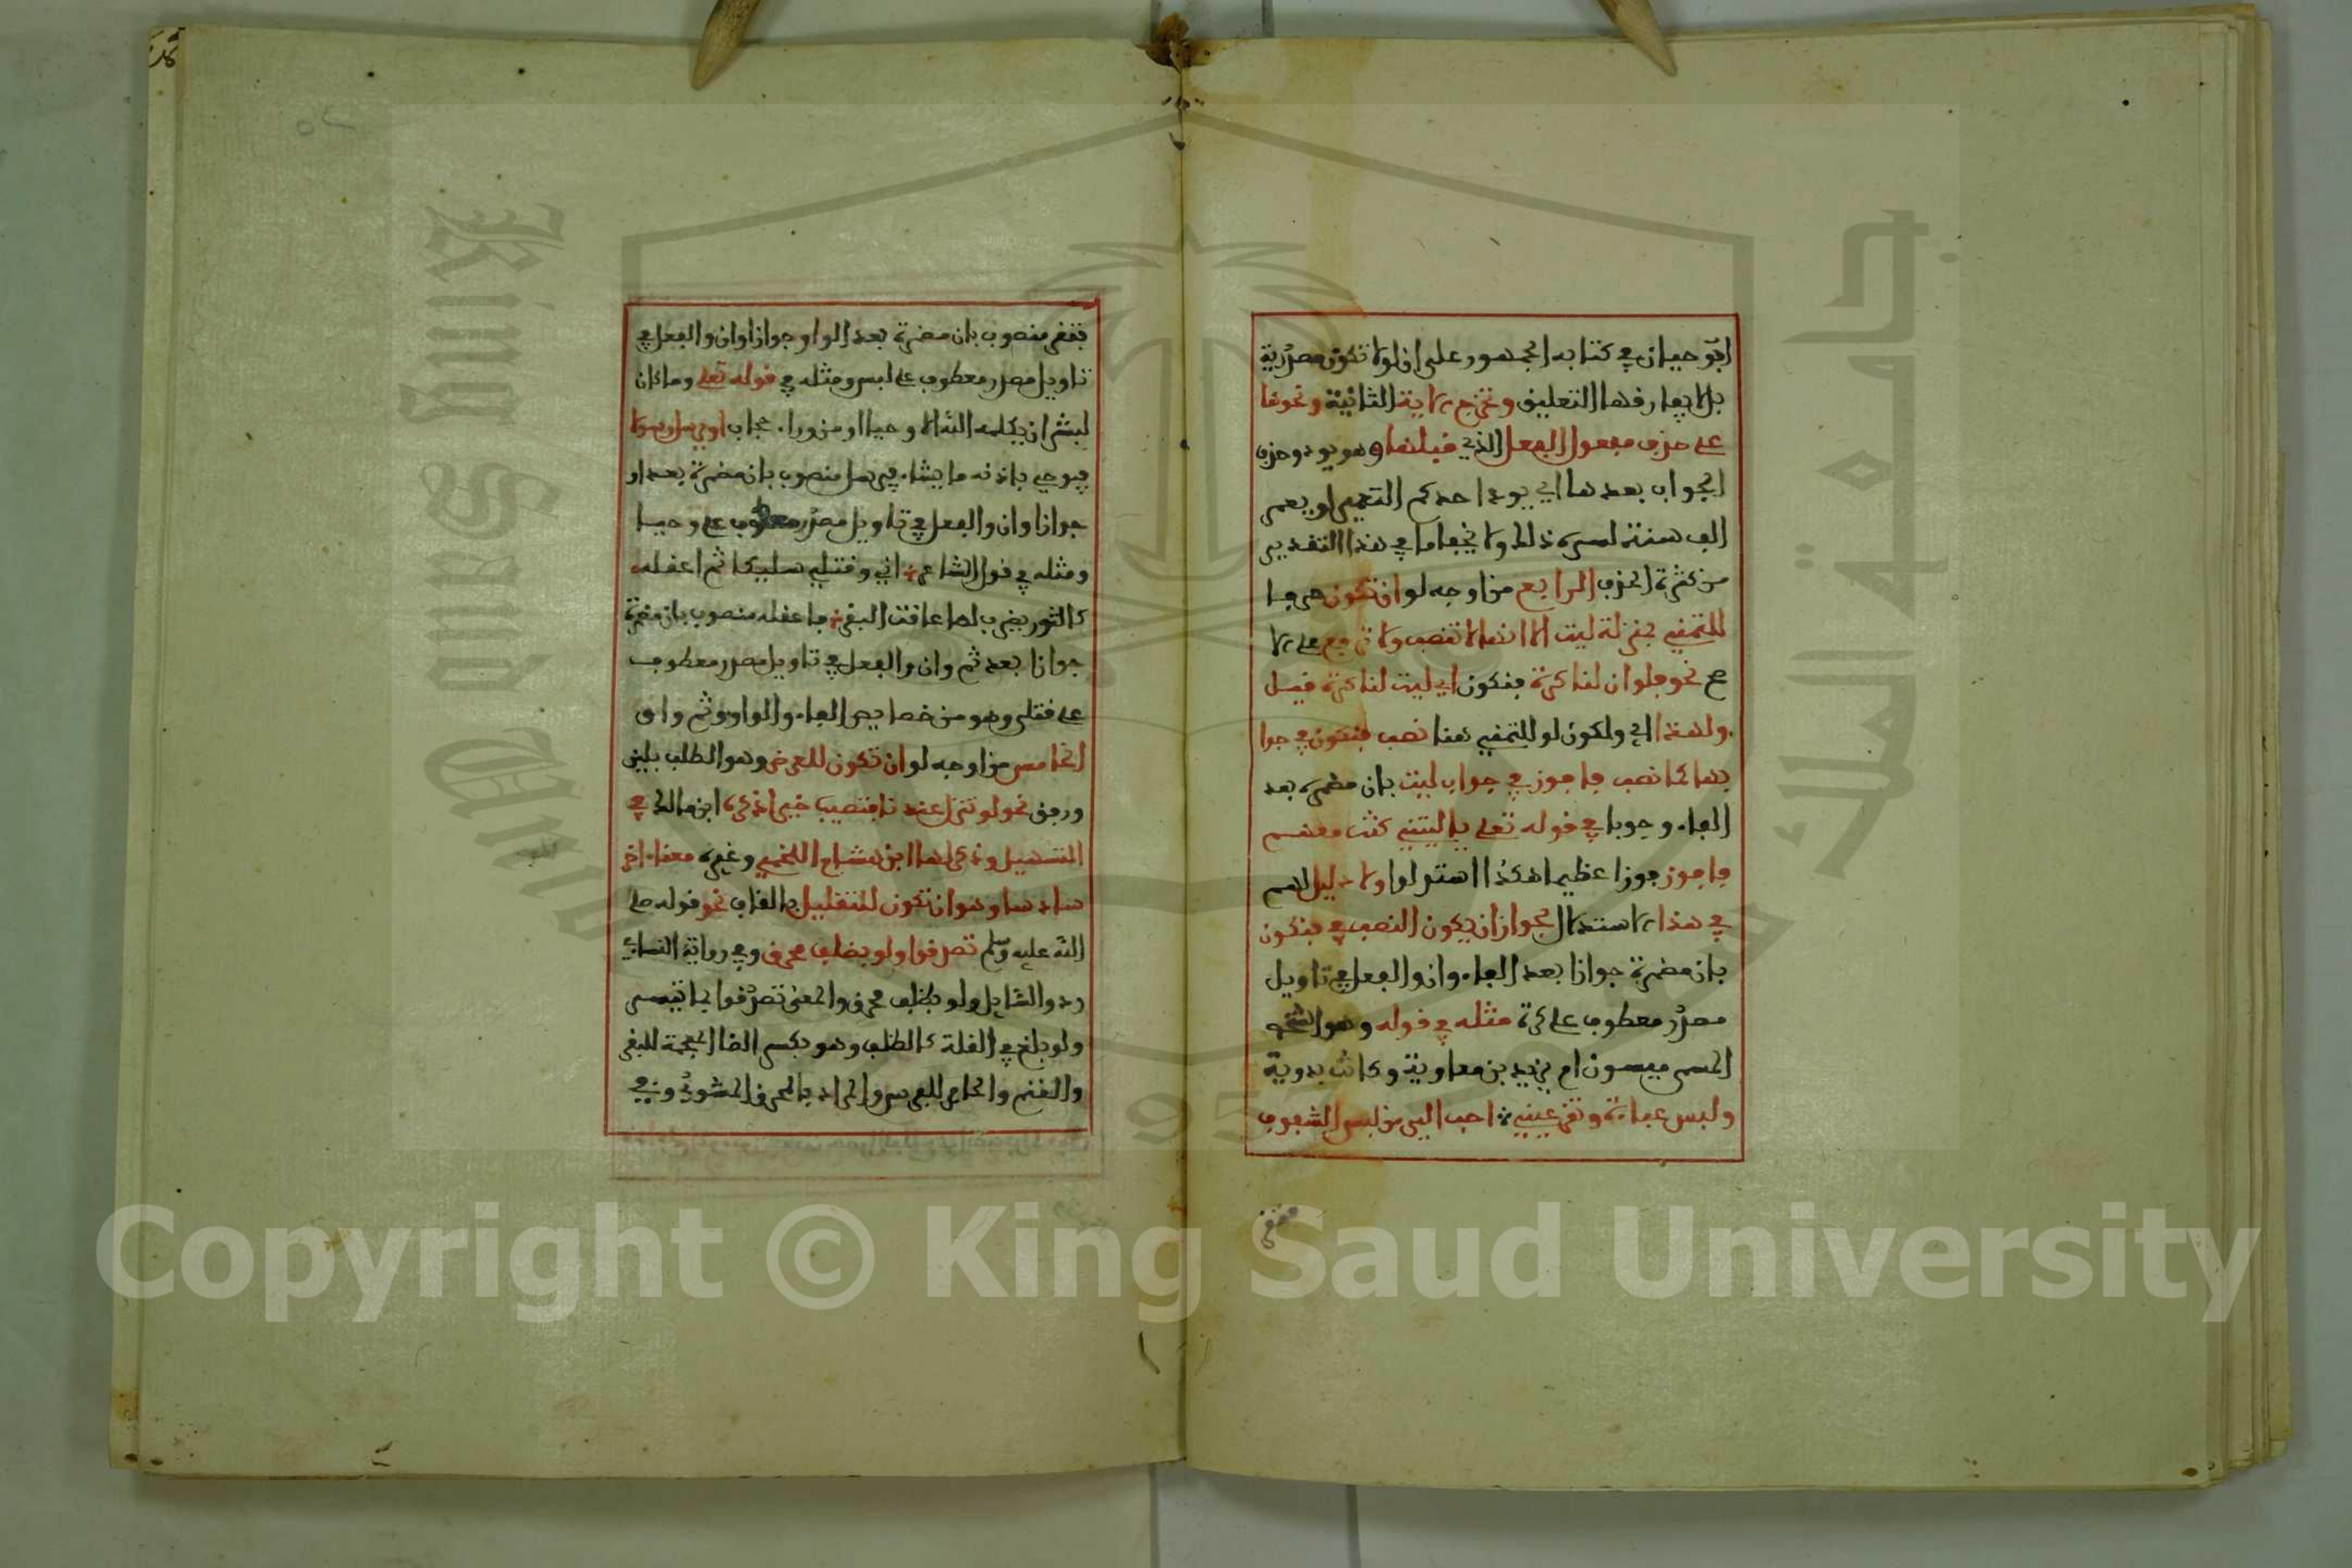 ابو حيان في كتابه الجمهور على ان لو لا تكون مصدرية
بل لا يفارقها التعليق وتخرج الاية الثانية ونحوها
على حذف مفعول الفعل الذي قبلها وهو يود وحذف
الجواب بعدها اي يود احدكم التعمير لو يعمر
الف سنة لسره ذلك ولا يخفا ما في هذا التقدير
من كثرة الحذف الرابع من اوجه لو ان تكون حرفا
للتمني بمنزلة ليت الا انها لا تنصب ولا ترفع على الا
صح نحو فلو ان لنا كرة فنكون اي ليت لنا كرة قيل
ولهذا اي ولكون لو للتمني هنا نصب فنكون في جوا
بها كما نصب فافوز في جواب ليت بان مضمرة بعد
الفاء وجوبا في قوله تعلى ياليتني كنت معهم
فافوز فوزا عظيما هكذا استدلوا ولا دليل لهم
في هذا الاستدلال لجواز ان يكون النصب في فنكون
بان مضمرة جوازا بعد الفاء وان والفعل في تاويل
مصدر معطوف على كرة مثله في قوله وهو الشخص
المسمى ميسون ام يزيد بن معاوية وكانت بدوية
ولبس عباءة وتقر عيني احب الي من لبس الشفوف
فتقر
فتقر منصوب بان مضمرة بعد الواو جوازا وان والفعل في
تاويل مصدر معطوف على لبس ومثله في قوله تعلى وما كان
لبشر ان يكلمه الله الا وحيا او من وراء حجاب او يرسل رسولا
فيوحي باذنه ما يشاء فيرسل منصوب بان مضمرة بعد او
جوازا وان والفعل في تاويل مصدر معطوف على وحيا
ومثله في قول الشاعر اني وقتلي سليكا ثم اعقله
كالثور يضرب لما عافت البقر فاعقله منصوب بان مضمرة
جوازا بعد ثم وان والفعل في تاويل مصدر معطوف
على قتلي وهو من خصايص الفاء والواو وثم واو
الخامس من اوجه لو ان تكون للعرض وهو الطلب بلين
ورفق نحو لو تنزل عندنا فتصيب خيرا ذكره ابن مالك في
التسهيل وذكر لها ابن هشام اللخمي وغيره معناء اخر
سادسا وهو ان تكون للتقليل بالقاف نحو قوله صلى
الله عليه وسلم تصدقوا ولو بظلف محرق وفي رواية النساءي
ردوا السايل ولو بظلف محرق والمعنى تصدقوا بما تيسر
ولو بلغ في القلة كالظلف وهو بكسر الظا المعجمة للبقر
والغنم والحافر للفرس والمراد بالمحرق المشوي وفي
Copyright © King Saud University
King Saud University
1957